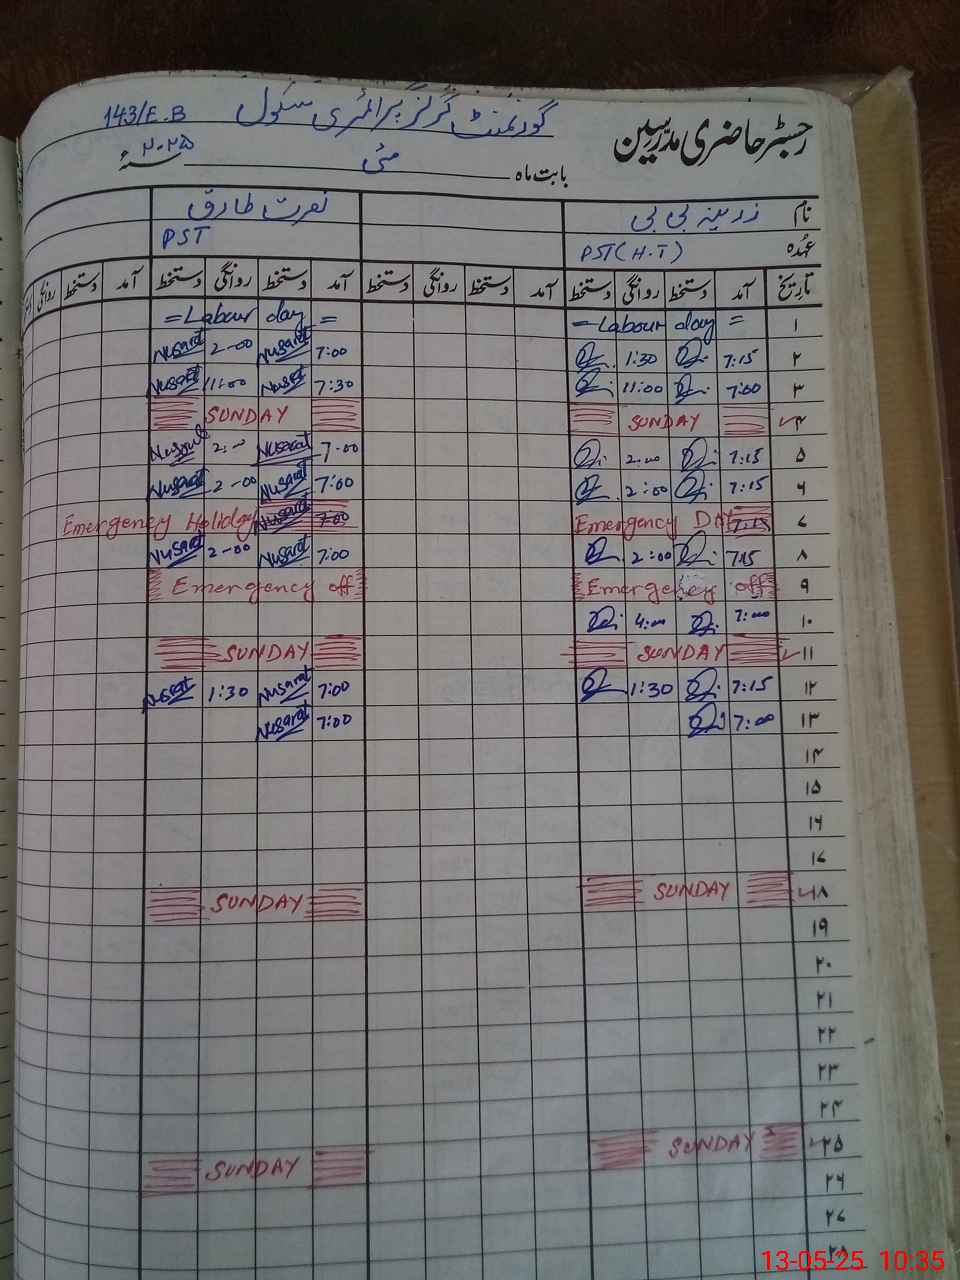 رجسٹر حاضری مدرسین
گورنمنٹ گرلز پرائمری سکول 143/E.B
بابت ماہ مئی سنہ ۲۰۲۵
نام زرینہ بی بی نصرت طارق
عہدہ PST (H.T) PST
تاریخ آمد دستخط روانگی دستخط آمد دستخط روانگی دستخط آمد دستخط روانگی دستخط آمد دستخط روانگی
۱ = Labour day = = Labour day =
۲ 7:15 1:30 7:00 Nusarat 2-00 Nusarat
۳ 7:00 11:00 7:30 Nusrat 11:00 Nusarat
۴ SUNDAY SUNDAY
۵ 7:15 2:00 7-00 Nusarat 2:- Nusarat
۶ 7:15 2:00 7:00 Nusarat 2-00 Nusarat
۷ 7:15 Emergency DAY 7:00 Nusarat Emergency Holiday
۸ 7:15 2:00 7:00 Nusarat 2-00 Nusarat
۹ Emergency off Emergency off
۱۰ 7:00 4:00
۱۱ SUNDAY SUNDAY
۱۲ 7:15 1:30 7:00 Nusarat 1:30 Nusrat
۱۳ 7:00 7:00 Nusarat
۱۴
۱۵
۱۶
۱۷
۱۸ SUNDAY SUNDAY
۱۹
۲۰
۲۱
۲۲
۲۳
۲۴
۲۵ SUNDAY SUNDAY
۲۶
۲۷
۲۸
13-05-25 10:35